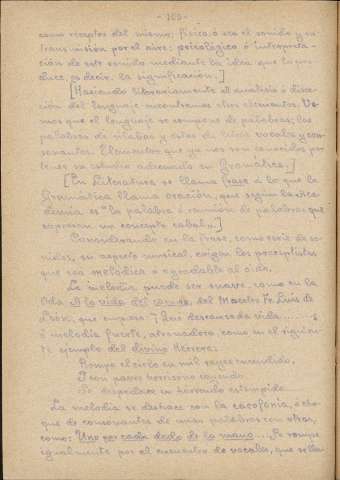 - 105 -
como receptor del mismo; física, ó sea el sonido y su
transmisión por el aire; psicológico ó interpreta-
ción de este sonido mediante la idea que lo pro-
duce, es decir, la significación.]
[Haciendo literariamente el análisis ó disec-
ción del lenguaje encontramos otros elementos. Ve-
mos que el lenguaje se compone de palabras; las
palabras de sílabas y estas de letras vocales y con-
sonantes. Elementos que ya nos son conocidos por
tener su estudio adecuado en Gramática.]
[En Literatura se llama frase á lo que la
Gramática llama oración, que según la Aca-
demia es "la palabra ó reunión de palabras que
expresan un concepto cabal".]
Considerando en la frase, como serie de so-
nidos, su aspecto musical, exigen los preceptistas
que sea melódica ó agradable al oído.
La melodía puede ser suave, como en la
Oda A la vida del campo, del Maestro Fr. Luis de
León, que empieza ¡Qué descansada vida
ó melodía fuerte, atronadora, como en el siguien-
te ejemplo del divino Herrera:
Rompe el cielo en mil rayos encendido,
I con pavor horrísono cayendo
Se despedaza en hórrido estampido.
La melodía se destruye con la cacofonía, ó cho-
que de consonantes de unas palabras con otras,
como: Uno por cada dedo de la mano.... Se rompe
igualmente por el encuentro de vocales, que se lla-